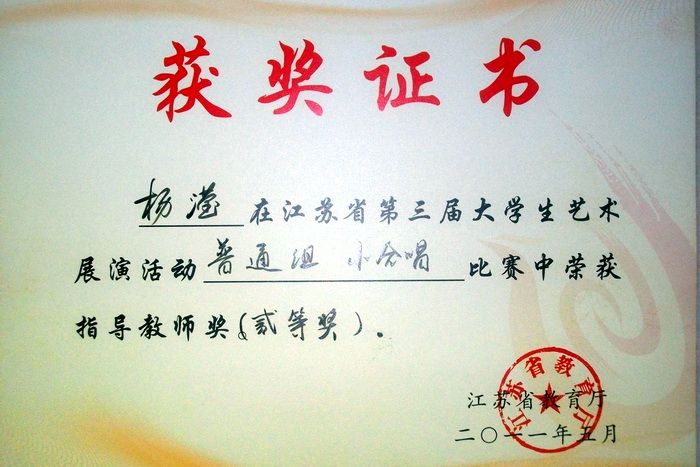 获奖证书
杨滢在江苏省第三届大学生艺术
展演活动普通组 小合唱比赛中荣获
指导教师奖(贰等奖)。
江苏省教育厅
江苏省教育厅
二〇一一年五月